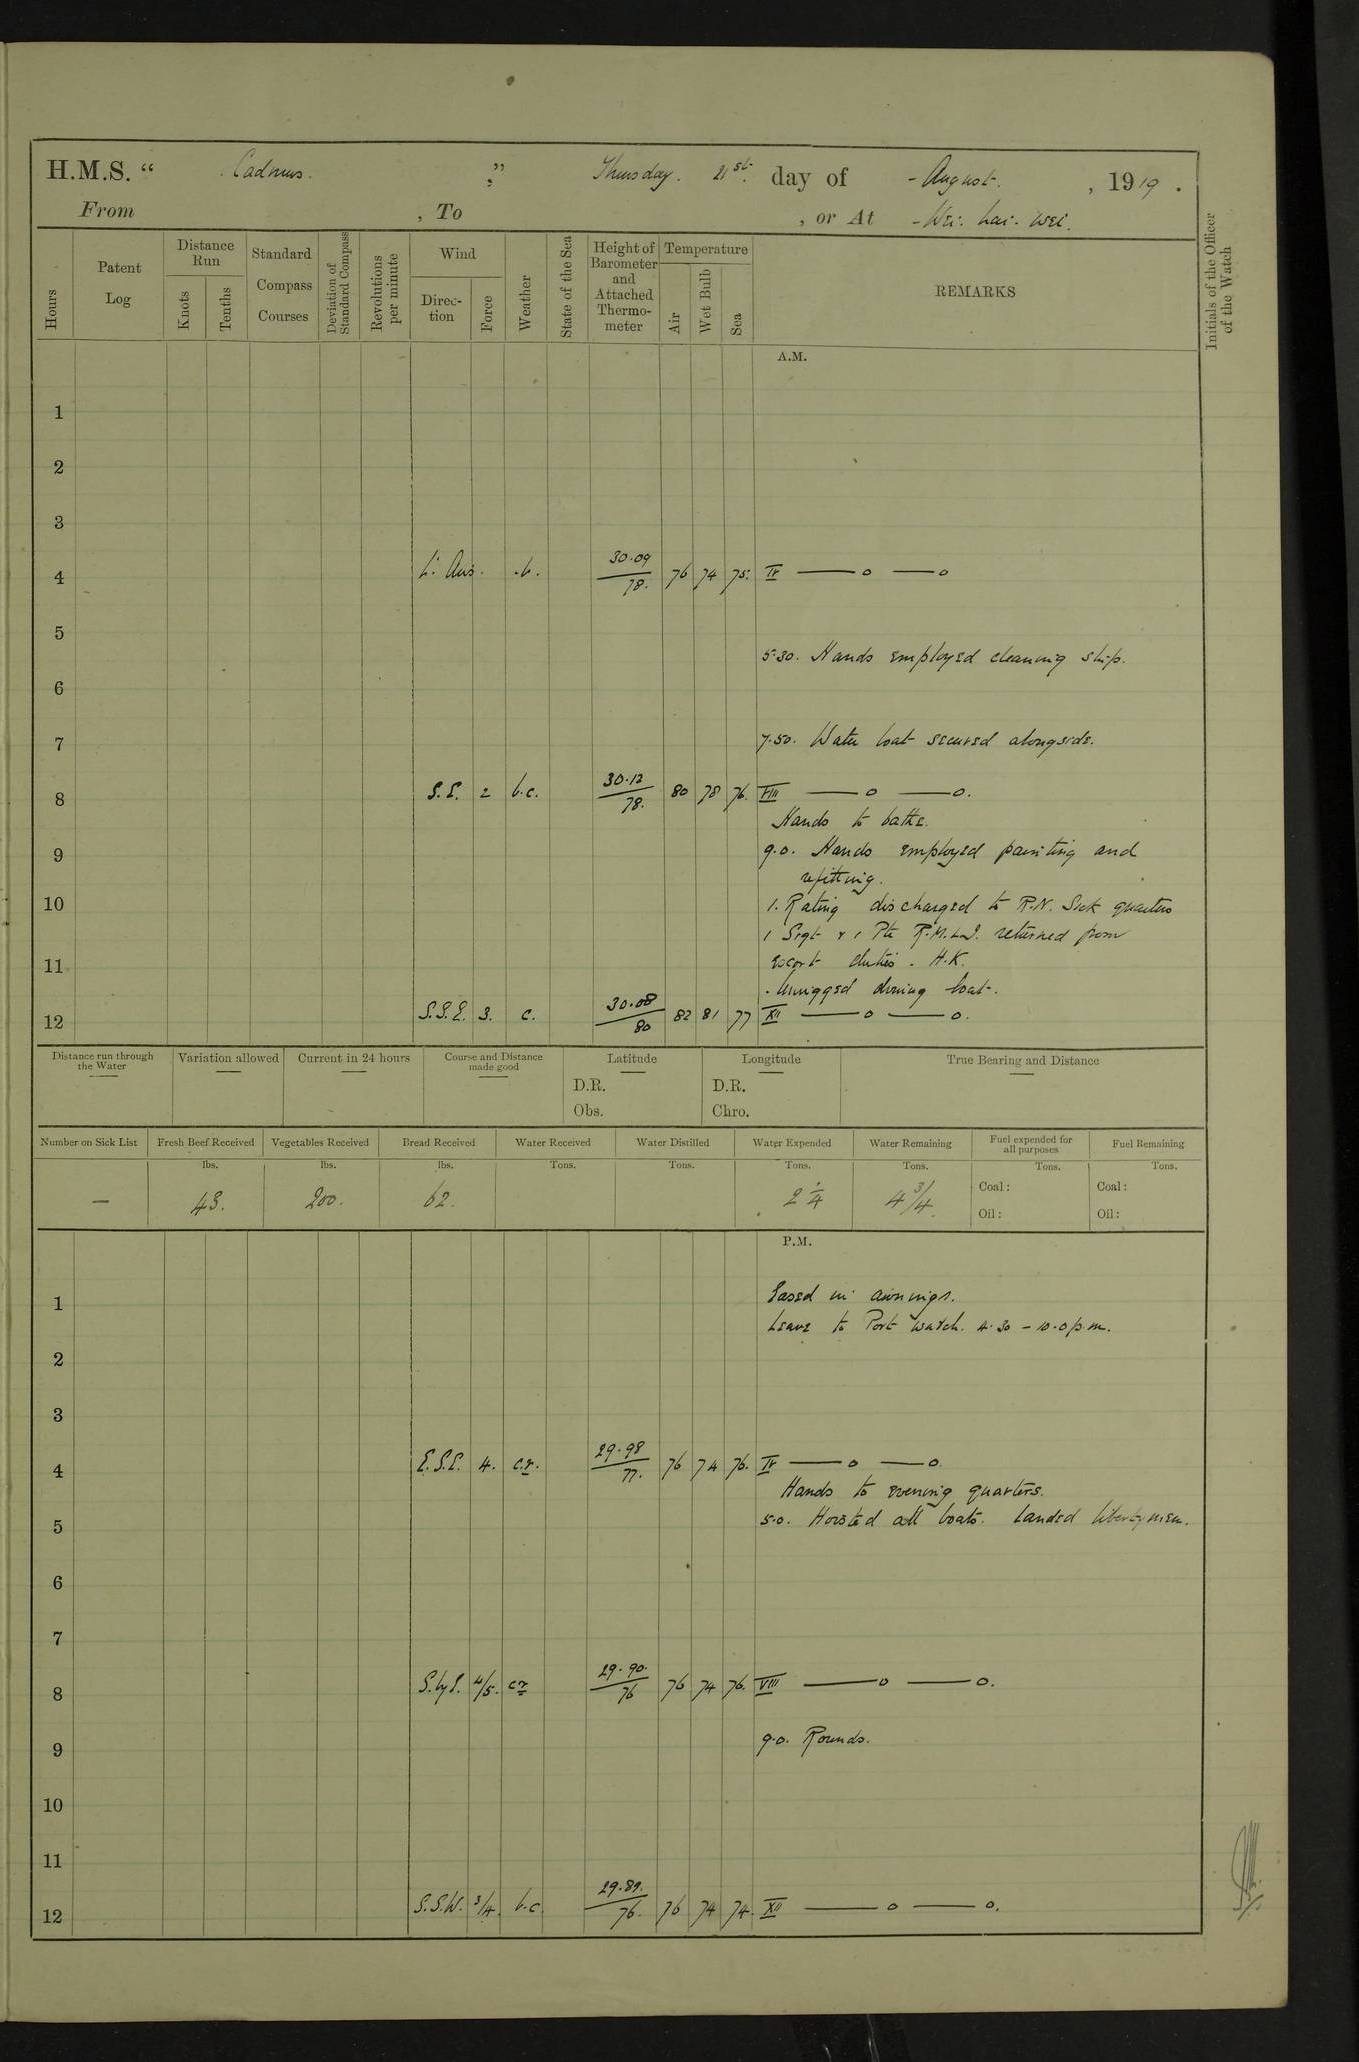 H.M.S. “ Cadmus. ,” Thursday. 21st. day of - August. , 1919 .
From , To , or At - Wei. hai. wei.
Hours
Patent Log
Distance Run
Knots
Tenths
Standard Compass Courses
Deviation of Standard Compass
Revolutions per minute
Wind
Direc-tion
Force
Weather
State of the Sea
Height of Barometer and Attached Thermo-meter
Temperature
Air
Wet Bulb
Sea
REMARKS
Initials of the Officer of the Watch
A.M.
1
2
3
4 Lt. Airs. b. 30.09/78. 76 74 75. IV —— o —— o
5
5.30. Hands employed cleaning ship.
6
7 7.50. Water boat secured alongside.
8 S.E. 2 b.c. 30.12/78. 80 78 76. VIII —— o —— o.
Hands to bathe.
9 9.0. Hands employed painting and
refitting.
10 1. Rating discharged to R.N. Sick quarters
1 Srgt & 1 Pte R.M.L.I. returned from
11 escort duties. H.K.
. Unrigged diving boat.
12 S.S.E. 3. c. 30.08/80 82 81 77 XII —— o —— o.
Distance run through the Water
Variation allowed
Current in 24 hours
Course and Distance made good
Latitude
D.R.
Obs.
Longitude
D.R.
Chro.
True Bearing and Distance
Number on Sick List Fresh Beef Received Vegetables Received Bread Received Water Received Water Distilled Water Expended Water Remaining Fuel expended for all purposes Fuel Remaining
lbs. lbs. lbs. Tons. Tons. Tons. Tons. Tons. Tons.
— 43. 200. 62. 2 1/4 4 3/4. Coal : Coal :
Oil : Oil :
P.M.
1 Eased in awnings.
Leave to Port watch. 4.30 - 10.0 p.m.
2
3
4 E.S.E. 4. c.r. 29.98/77. 76 74 76. IV —— o —— o.
Hands to evening quarters.
5 5.0. Hoisted all boats. Landed libertymen.
6
7
8 S.byE. 4/5. cr 29.90./76 76 74 76. VIII —— o —— o.
9 9.0. Rounds.
10
11
12 S.S.W. 3/4. b.c. 29.89./76. 76 74 74. XII —— o —— o.